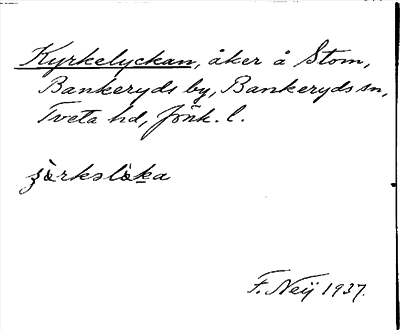 Kyrkelyckan, åker å Stom,
Bankeryds by, Bankeryds sn,
Tveta hd, Jönk. l.
F. Neij 1937.